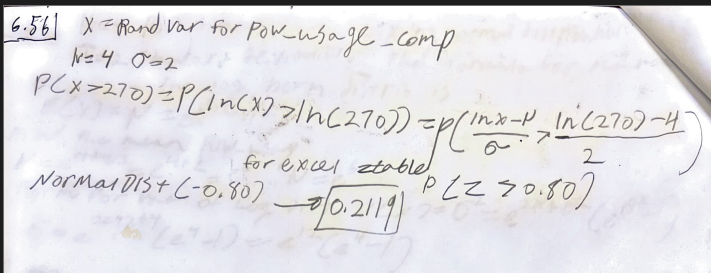 6.56 X = Rand var for pow_usage_comp
μ=4 σ=2
P(x>270)=P(ln(x)>ln(270))=p(lnx-μ/σ > ln(270)-4/2)
for excel ztable P(Z>0.80)
NormalDist(-0.80) → 0.2119